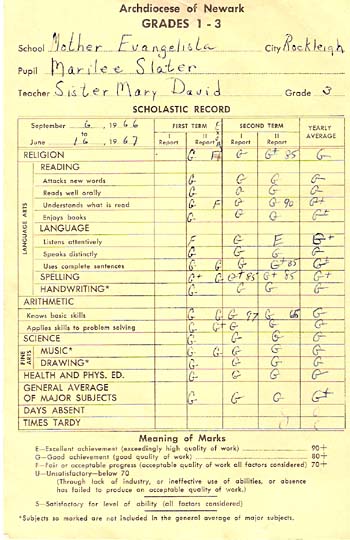 Archdiocese of Newark
GRADES 1 - 3
School Mother Evangelista City Rockleigh
Pupil Marilee Slater
Teacher Sister Mary David Grade 3
SCHOLASTIC RECORD
September 6, 1966
to
June 16, 1967
FIRST TERM
SECOND TERM
YEARLY AVERAGE
I Report
II Report
I Report
II Report
RELIGION G F+ G G+ 85 G
LANGUAGE ARTS
READING
Attacks new words G G G G
Reads well orally G G G G
Understands what is read G F G G 90 G+
Enjoys books G G G G+
LANGUAGE
Listens attentively F G E G+
Speaks distinctly G G G G
Uses complete sentences G G G G+ 85 G+
SPELLING G+ G G+ 85 G+ 85 G+
HANDWRITING* G G G G
ARITHMETIC
Knows basic skills G G G 97 G G
Applies skills to problem solving G G+ G G G
SCIENCE G G G G
FINE ARTS
MUSIC* G G G G G
DRAWING* G G G G
HEALTH AND PHYS. ED. G G G G
GENERAL AVERAGE
OF MAJOR SUBJECTS G G G G+
DAYS ABSENT
TIMES TARDY
Meaning of Marks
E—Excellent achievement (exceedingly high quality of work) 90+
G—Good achievement (good quality of work) 80+
F—Fair or acceptable progress (acceptable quality of work all factors considered) 70+
U—Unsatisfactory—below 70
(Through lack of industry, or ineffective use of abilities, or absence
has failed to produce an acceptable quality of work.)
S—Satisfactory for level of ability (all factors considered)
*Subjects so marked are not included in the general average of major subjects.